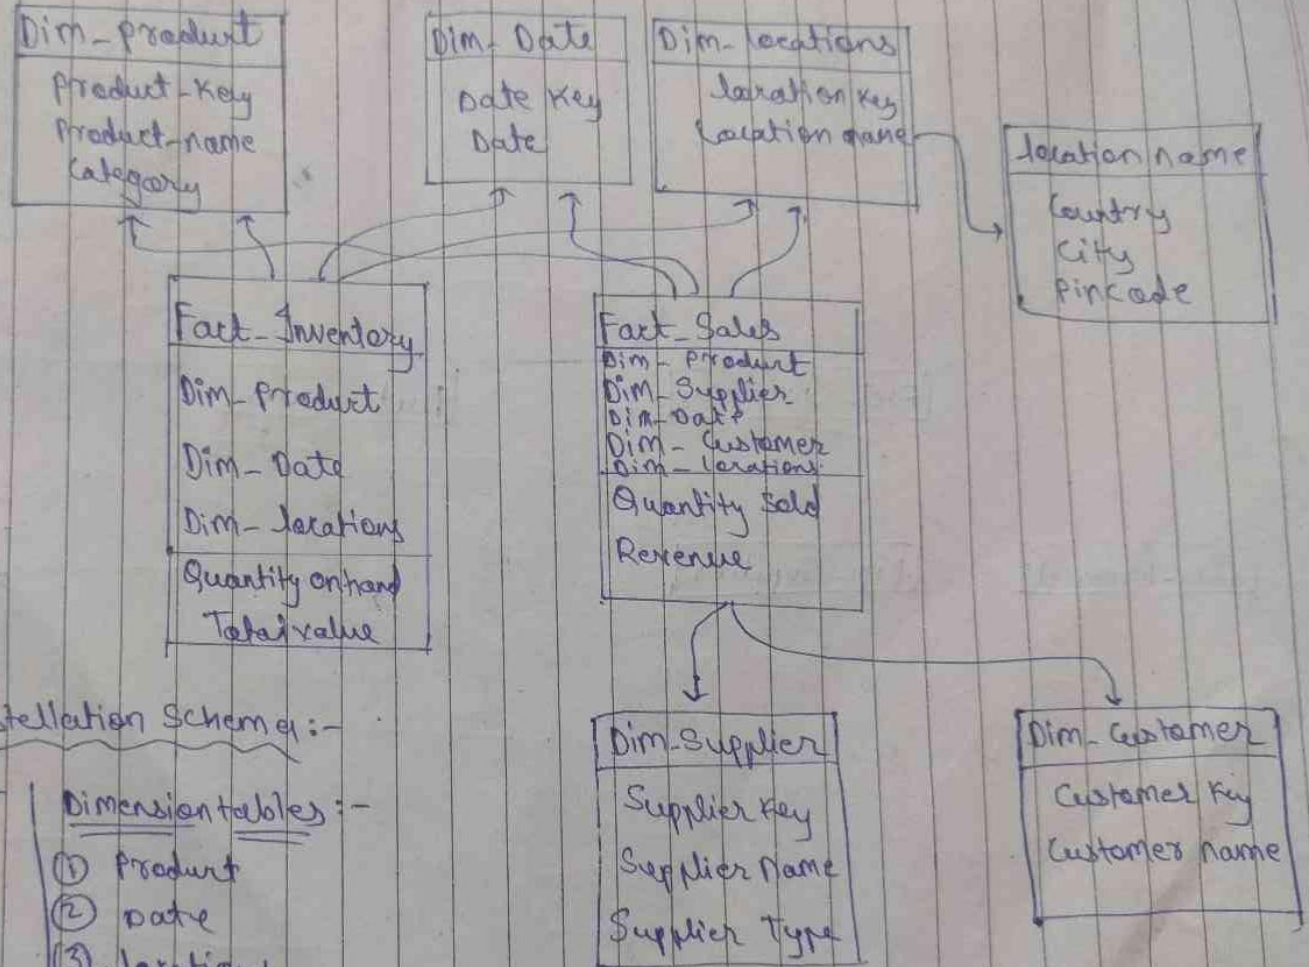 Dim-Product
Product-Key
Product-name
Category
Dim-Date
Date Key
Date
Dim-locations
location Key
Location name
location name
Country
City
Pincode
Fact-Inventory
Dim-Product
Dim-Date
Dim-locations
Quantity on hand
Total value
Fact-Sales
Dim-Product
Dim-Supplier
Dim-Date
Dim-Customer
Dim-locations
Quantity Sold
Revenue
Dim-Supplier
Supplier Key
Supplier Name
Supplier Type
Dim-Customer
Customer Key
Customer name
tellation Schema:-
Dimension tables:-
① Product
② Date
③